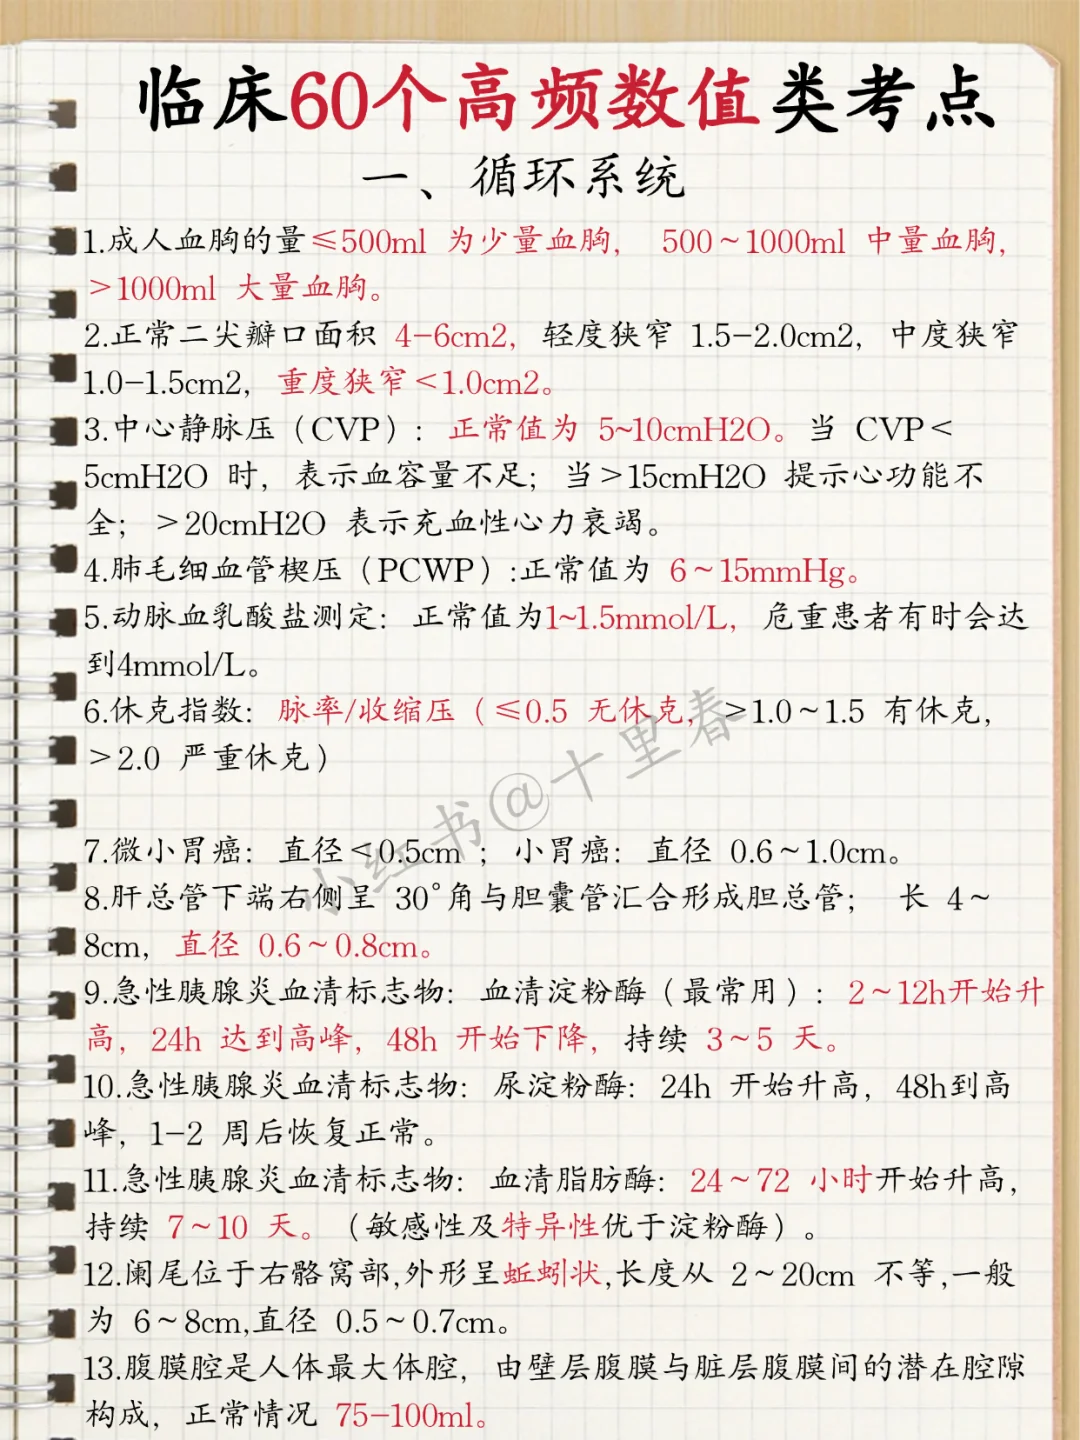 临床60个高频数值类考点
一、循环系统
1.成人血胸的量≤500ml 为少量血胸， 500～1000ml 中量血胸，
＞1000ml 大量血胸。
2.正常二尖瓣口面积 4-6cm2，轻度狭窄 1.5-2.0cm2，中度狭窄
1.0-1.5cm2，重度狭窄＜1.0cm2。
3.中心静脉压（CVP）：正常值为 5~10cmH2O。当 CVP＜
5cmH2O 时，表示血容量不足；当＞15cmH2O 提示心功能不
全；＞20cmH2O 表示充血性心力衰竭。
4.肺毛细血管楔压（PCWP）:正常值为 6～15mmHg。
5.动脉血乳酸盐测定：正常值为1~1.5mmol/L，危重患者有时会达
到4mmol/L。
6.休克指数：脉率/收缩压（≤0.5 无休克，＞1.0～1.5 有休克，
＞2.0 严重休克）
小红书@十里春
7.微小胃癌：直径＜0.5cm ；小胃癌：直径 0.6～1.0cm。
8.肝总管下端右侧呈 30°角与胆囊管汇合形成胆总管； 长 4～
8cm，直径 0.6～0.8cm。
9.急性胰腺炎血清标志物：血清淀粉酶（最常用）：2～12h开始升
高，24h 达到高峰，48h 开始下降，持续 3～5 天。
10.急性胰腺炎血清标志物：尿淀粉酶：24h 开始升高，48h到高
峰，1-2 周后恢复正常。
11.急性胰腺炎血清标志物：血清脂肪酶：24～72 小时开始升高，
持续 7～10 天。（敏感性及特异性优于淀粉酶）。
12.阑尾位于右髂窝部,外形呈蚯蚓状,长度从 2～20cm 不等,一般
为 6～8cm,直径 0.5～0.7cm。
13.腹膜腔是人体最大体腔，由壁层腹膜与脏层腹膜间的潜在腔隙
构成，正常情况 75-100ml。